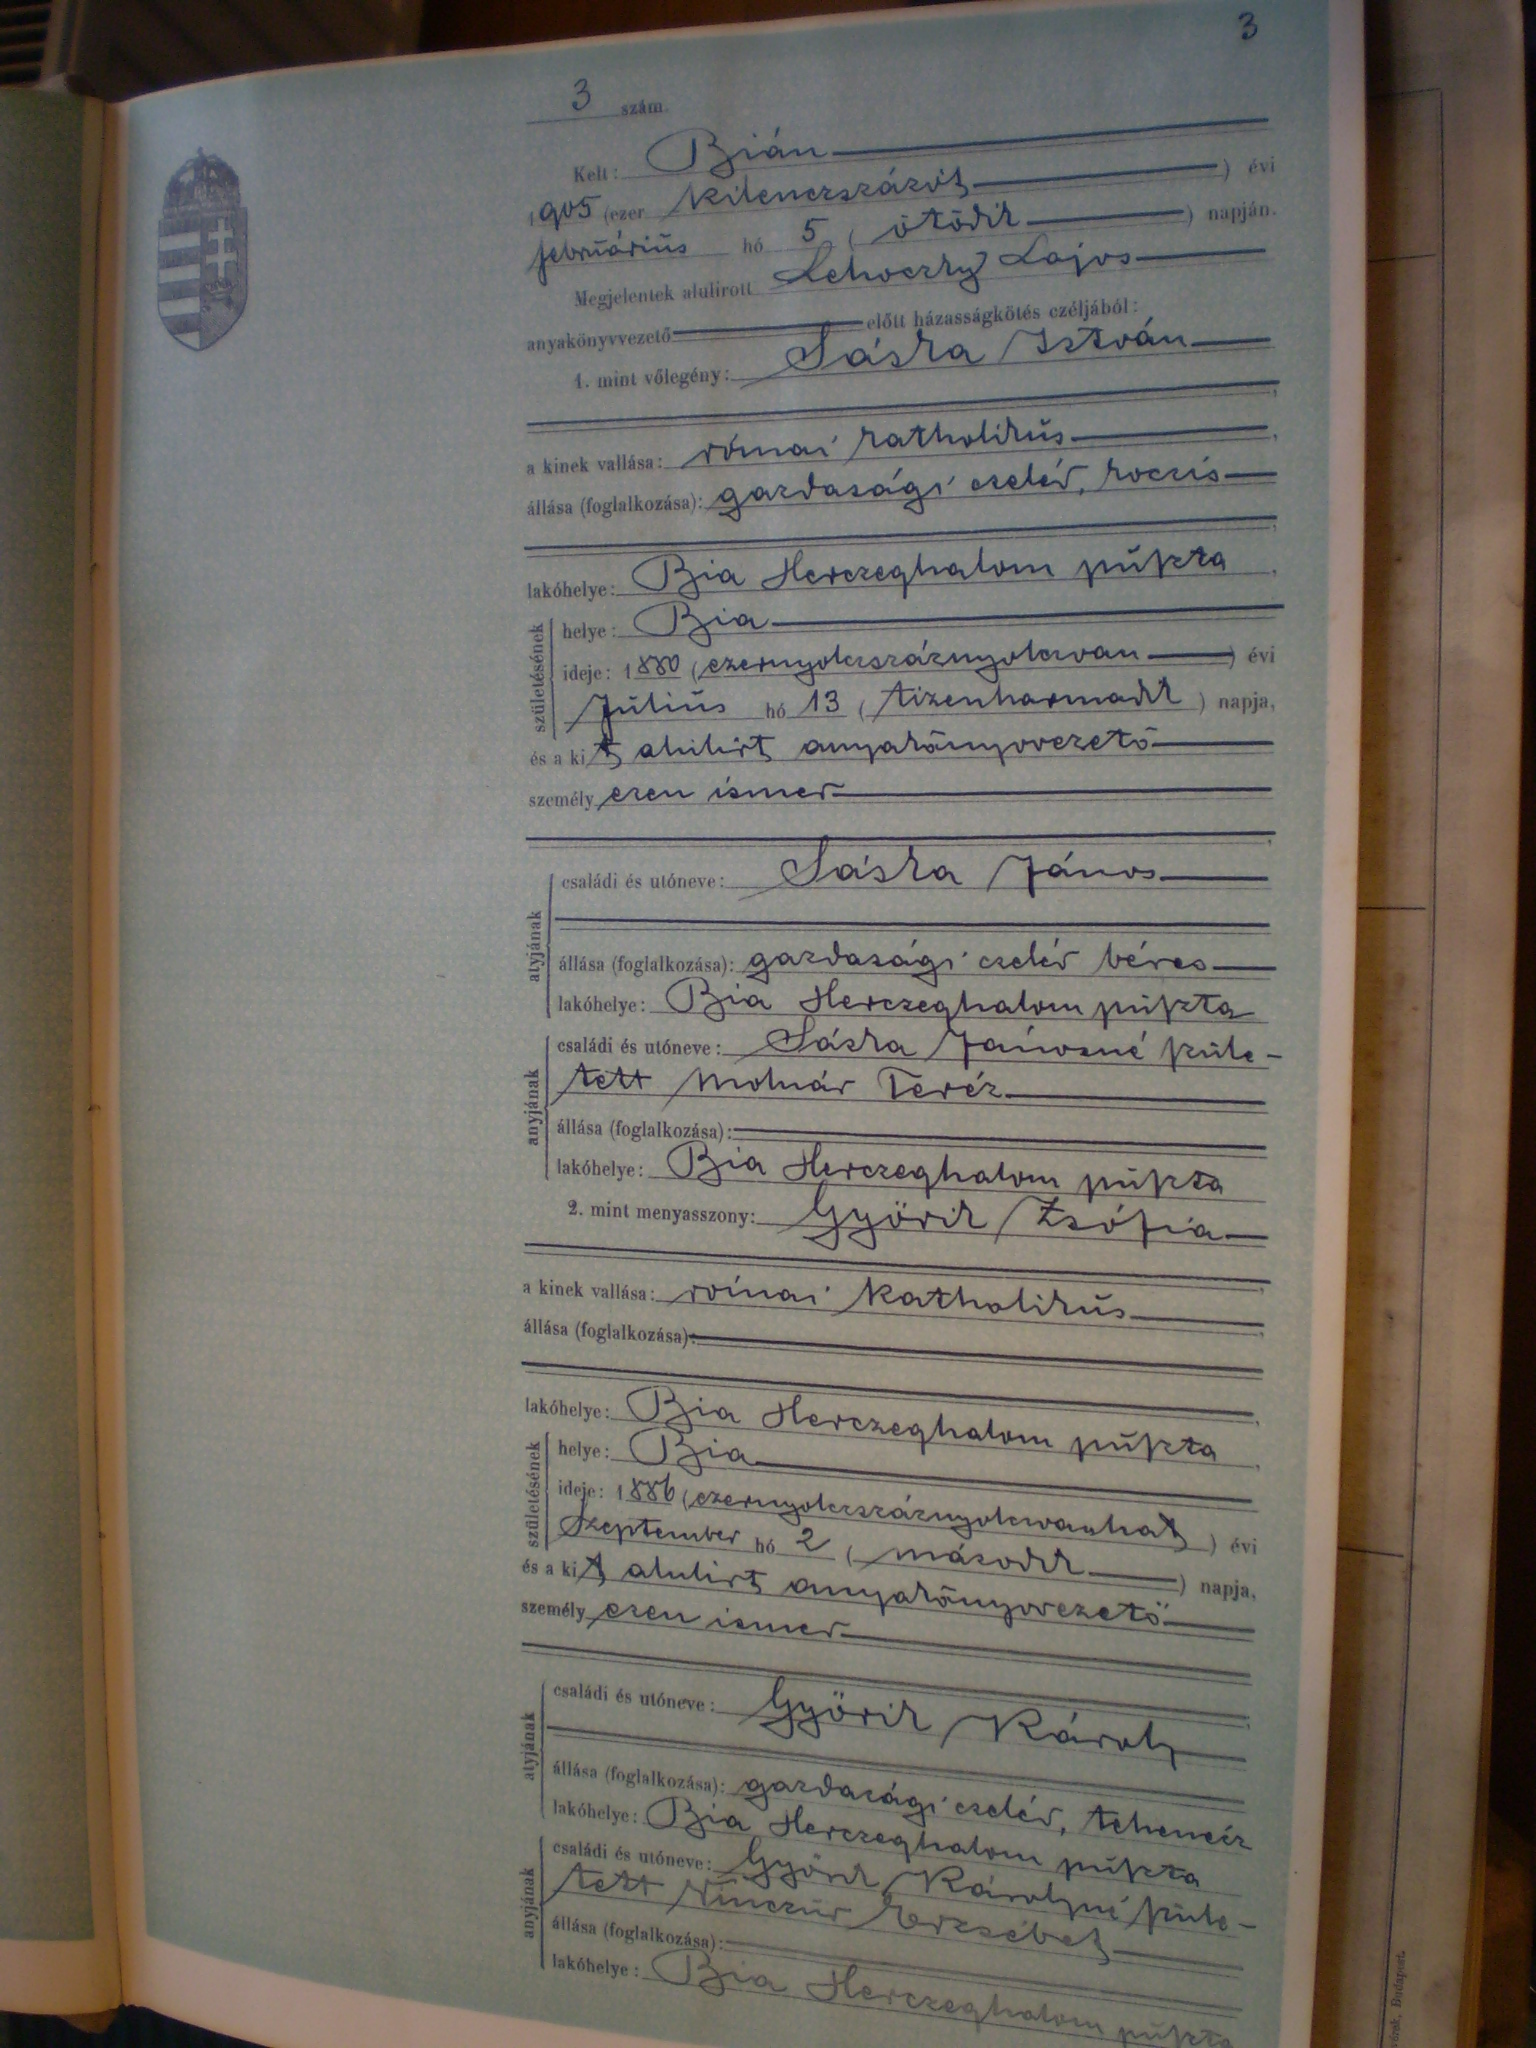 3
3 szám.
Kelt: Bián
1905 (ezer kilenczszázöt) évi
február̄ius hó 5 (ötödik) napján.
Megjelentek alulirott Lehoczky Lajos
anyakönyvvezető előtt házasságkötés czéljából:
1. mint vőlegény: Sáska István
a kinek vallása: római katholikus
állása (foglalkozása): gazdasági cseléd, kocsis
lakóhelye: Bia Herczeghalom puszta
születésének
helye: Bia
ideje: 1880 (ezernyolczszáznyolczvan) évi
Július hó 13 (tizenharmadik) napja,
és a kit alulirt anyakönyvvezető
személyesen ismer
atyjának
családi és utóneve: Sáska János
állása (foglalkozása): gazdasági cseléd béres
lakóhelye: Bia Herczeghalom puszta
anyjának
családi és utóneve: Sáska Jánosné szüle-
tett Molnár Teréz
állása (foglalkozása):
lakóhelye: Bia Herczeghalom puszta
2. mint menyasszony: Györik Zsófia
a kinek vallása: római katholikus
állása (foglalkozása):
lakóhelye: Bia Herczeghalom puszta
születésének
helye: Bia
ideje: 1886 (ezernyolczszáznyolczvanhat) évi
Szeptember hó 2 (második) napja,
és a kit alulirt anyakönyvvezető
személyesen ismer
atyjának
családi és utóneve: Györik Károly
állása (foglalkozása): gazdasági cseléd, tehenész
lakóhelye: Bia Herczeghalom puszta
anyjának
családi és utóneve: Györik Károlyné szüle-
tett Erzsébet
állása (foglalkozása):
lakóhelye: Bia Herczeghalom puszta
Budapest.